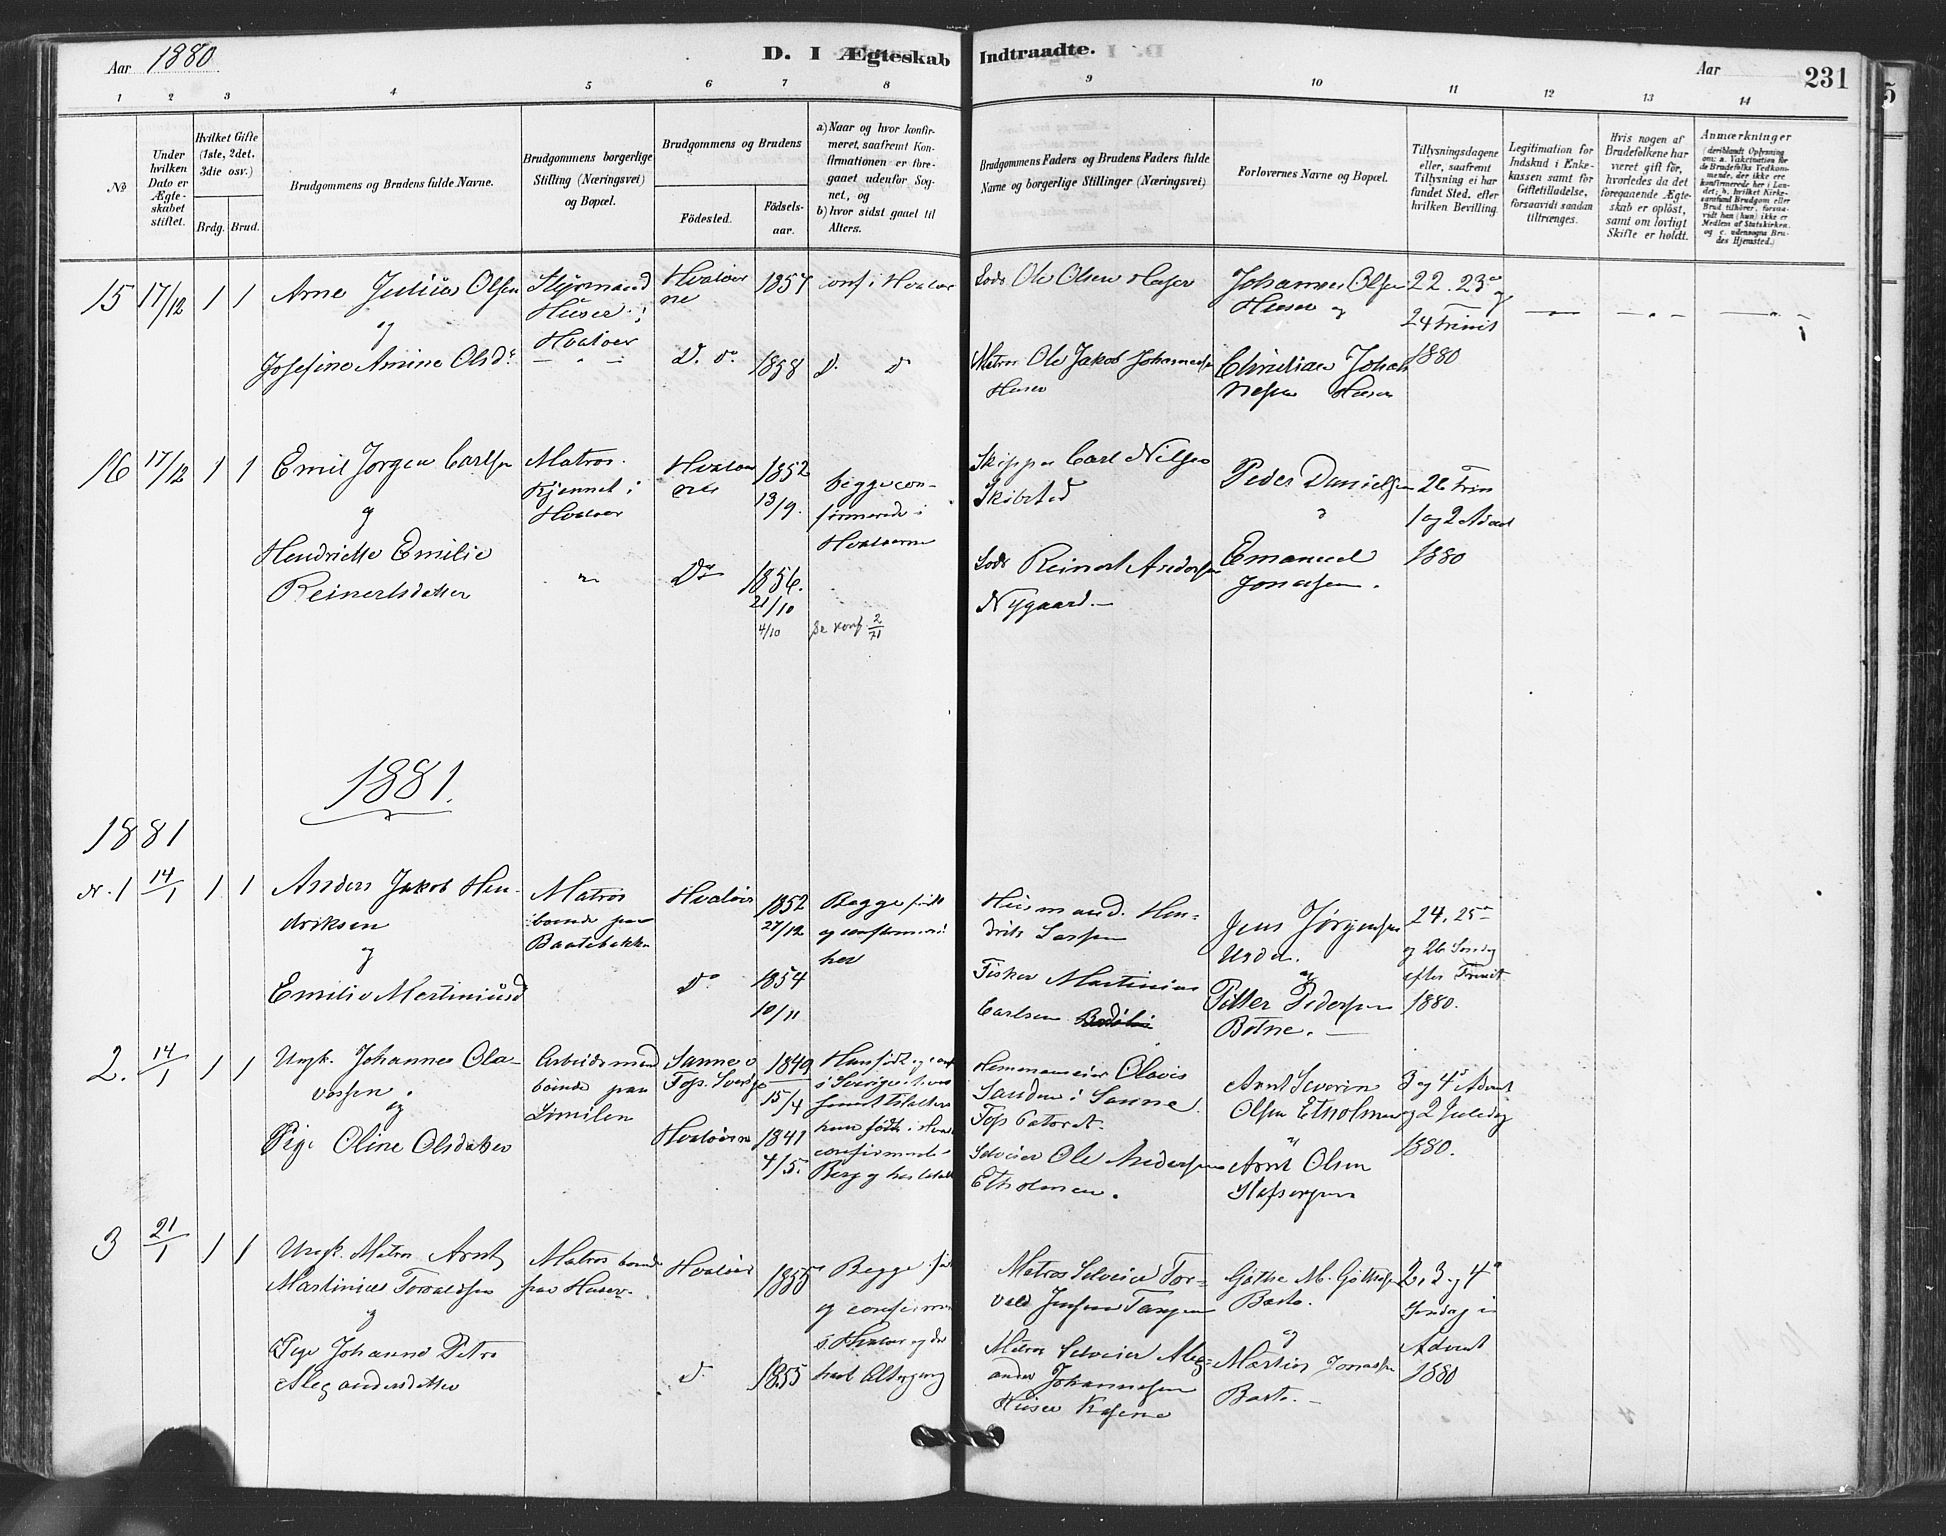 Aar 1880
D. I Ægteskab Indtraadte.
Aar
231
1 2 3 4 5 6 7 8 9 10 11 12 13 14
No
Under hvilken Dato er Ægteskabet stiftet.
Hvilket Gifte (1ste, 2det, 3die osv.)
Brdg. Brud.
Brudgommens og Brudens fulde Navne.
Brudgommens borgerlige Stilling (Næringsvei) og Bopæl.
Brudgommens og Brudens
Fødested.
Fødselsaar.
a) Naar og hvor konfirmeret, saafremt Konfirmationen er foregaaet udenfor Sognet, og
b) hvor sidst gaaet til Alters.
Brudgommens Faders og Brudens Faders fulde Navne og borgerlige Stillinger (Næringsvei)
Forlovernes Navne og Bopæl.
Tillysningsdagene eller, saafremt Tillysning ei har fundet Sted, efter hvilken Bevilling.
Legitimation for Indskud i Enkekassen samt for Giftetilladelse, forsaavidt saadan tiltrænges.
Hvis nogen af Brudefolkene har været gift før, hvorledes da det foregaaende Ægteskab er opløst, samt om lovligt Skifte er holdt.
Anmærkninger
(deriblandt Oplysning om: a. Vakcination for de Brudefolks Vedkommende, der ikke ere konfirmerede her i Landet; b. hvilket Kirkesamfund Brudgom eller Brud tilhører, forsaavidt han (hun) ikke er Medlem af Statskirken, og c. udensogns Brudes Hjemsted.)
15 17/12 1 1 Arne Julius Olsen
og
Josefine Amine Olsd.
Styrmand
Huser i
Hvaløer
Hvaløerne
D. do
1857
1858
conf. i Hvaløer
D. D
Lods Ole Olsen Huser
Matros Ole Jakob Johannesen
Huser
Johannes Olsen
Huser og
Christian Johannesen Huser
22. 23 og
24 Trinit
1880
16 17/12 1 1 Emil Jørgen Carlsen
og
Hendriette Emilie
Reinertsdatter
Matros
Kjennet i
Hvaløer
Hvaløerne
Do
1852
13/9.
1856.
21/10
4/10
begge con-
firmerede i
Hvaløerne
se konf. 2/71
Skipper Carl Nilsen
Skibsted
Lods Reinert Andersen
Nygaard.
Peder Danielsen
Emanuel
Jonasen.
26 Trin
1 og 2 Advent
1880
1881.
1881
Nr. 1 14/1 1 1 Anders Jakob Hen-
driksen
og
Emilie Martiniusd
Matros
boende paa
Baatebakke
Hvaløer
Do
1852
27/12
1854
10/11
Begge født
og confirmeret
her
Husmand. Hen-
drik Larsen
Fisker Martinius
Carlsen
Jens Jørgensen
Urdal.
og
Petter Pedersen
Botne.
24. 25
og 26 Sondag
efter Trinit
1880.
2. 14/1 1 1 Ungk. Johannes Ola-
vessen.
og
Pige Oline Olsdatter
Arbeidsmand
boende paa
Sanne
Hvaløerne
1849
15/4
1841
4/5.
Hemmanseier Olavis
Sanden i Sanne
Selveier Ole Andersen
Etholmen.
Arnt Severin
Olsen Etholmen
Arnt Olsen
3 og 4 Advent
og 2 Juledag
1880.
3 21/1 1 1 Ungk. Matros Arnt
Martinius Torvaldsen
og
Pige Johanne Petra
Alexandersdatter
Matros boende
paa Huser.
Hvaløer
D.
1855
1855
Begge født
og confirmeret
i Hvaløer og der
havt Altergang
Matros Selveier Tor-
vald Jensen Tangen
Matros Selveier Alex-
ander Johannesen
Huser
Gøthe M. Gøthesen
Basto.
og
Martin Jonassen
Basto.
2, 3 og 4
Søndag i
Advent
1880